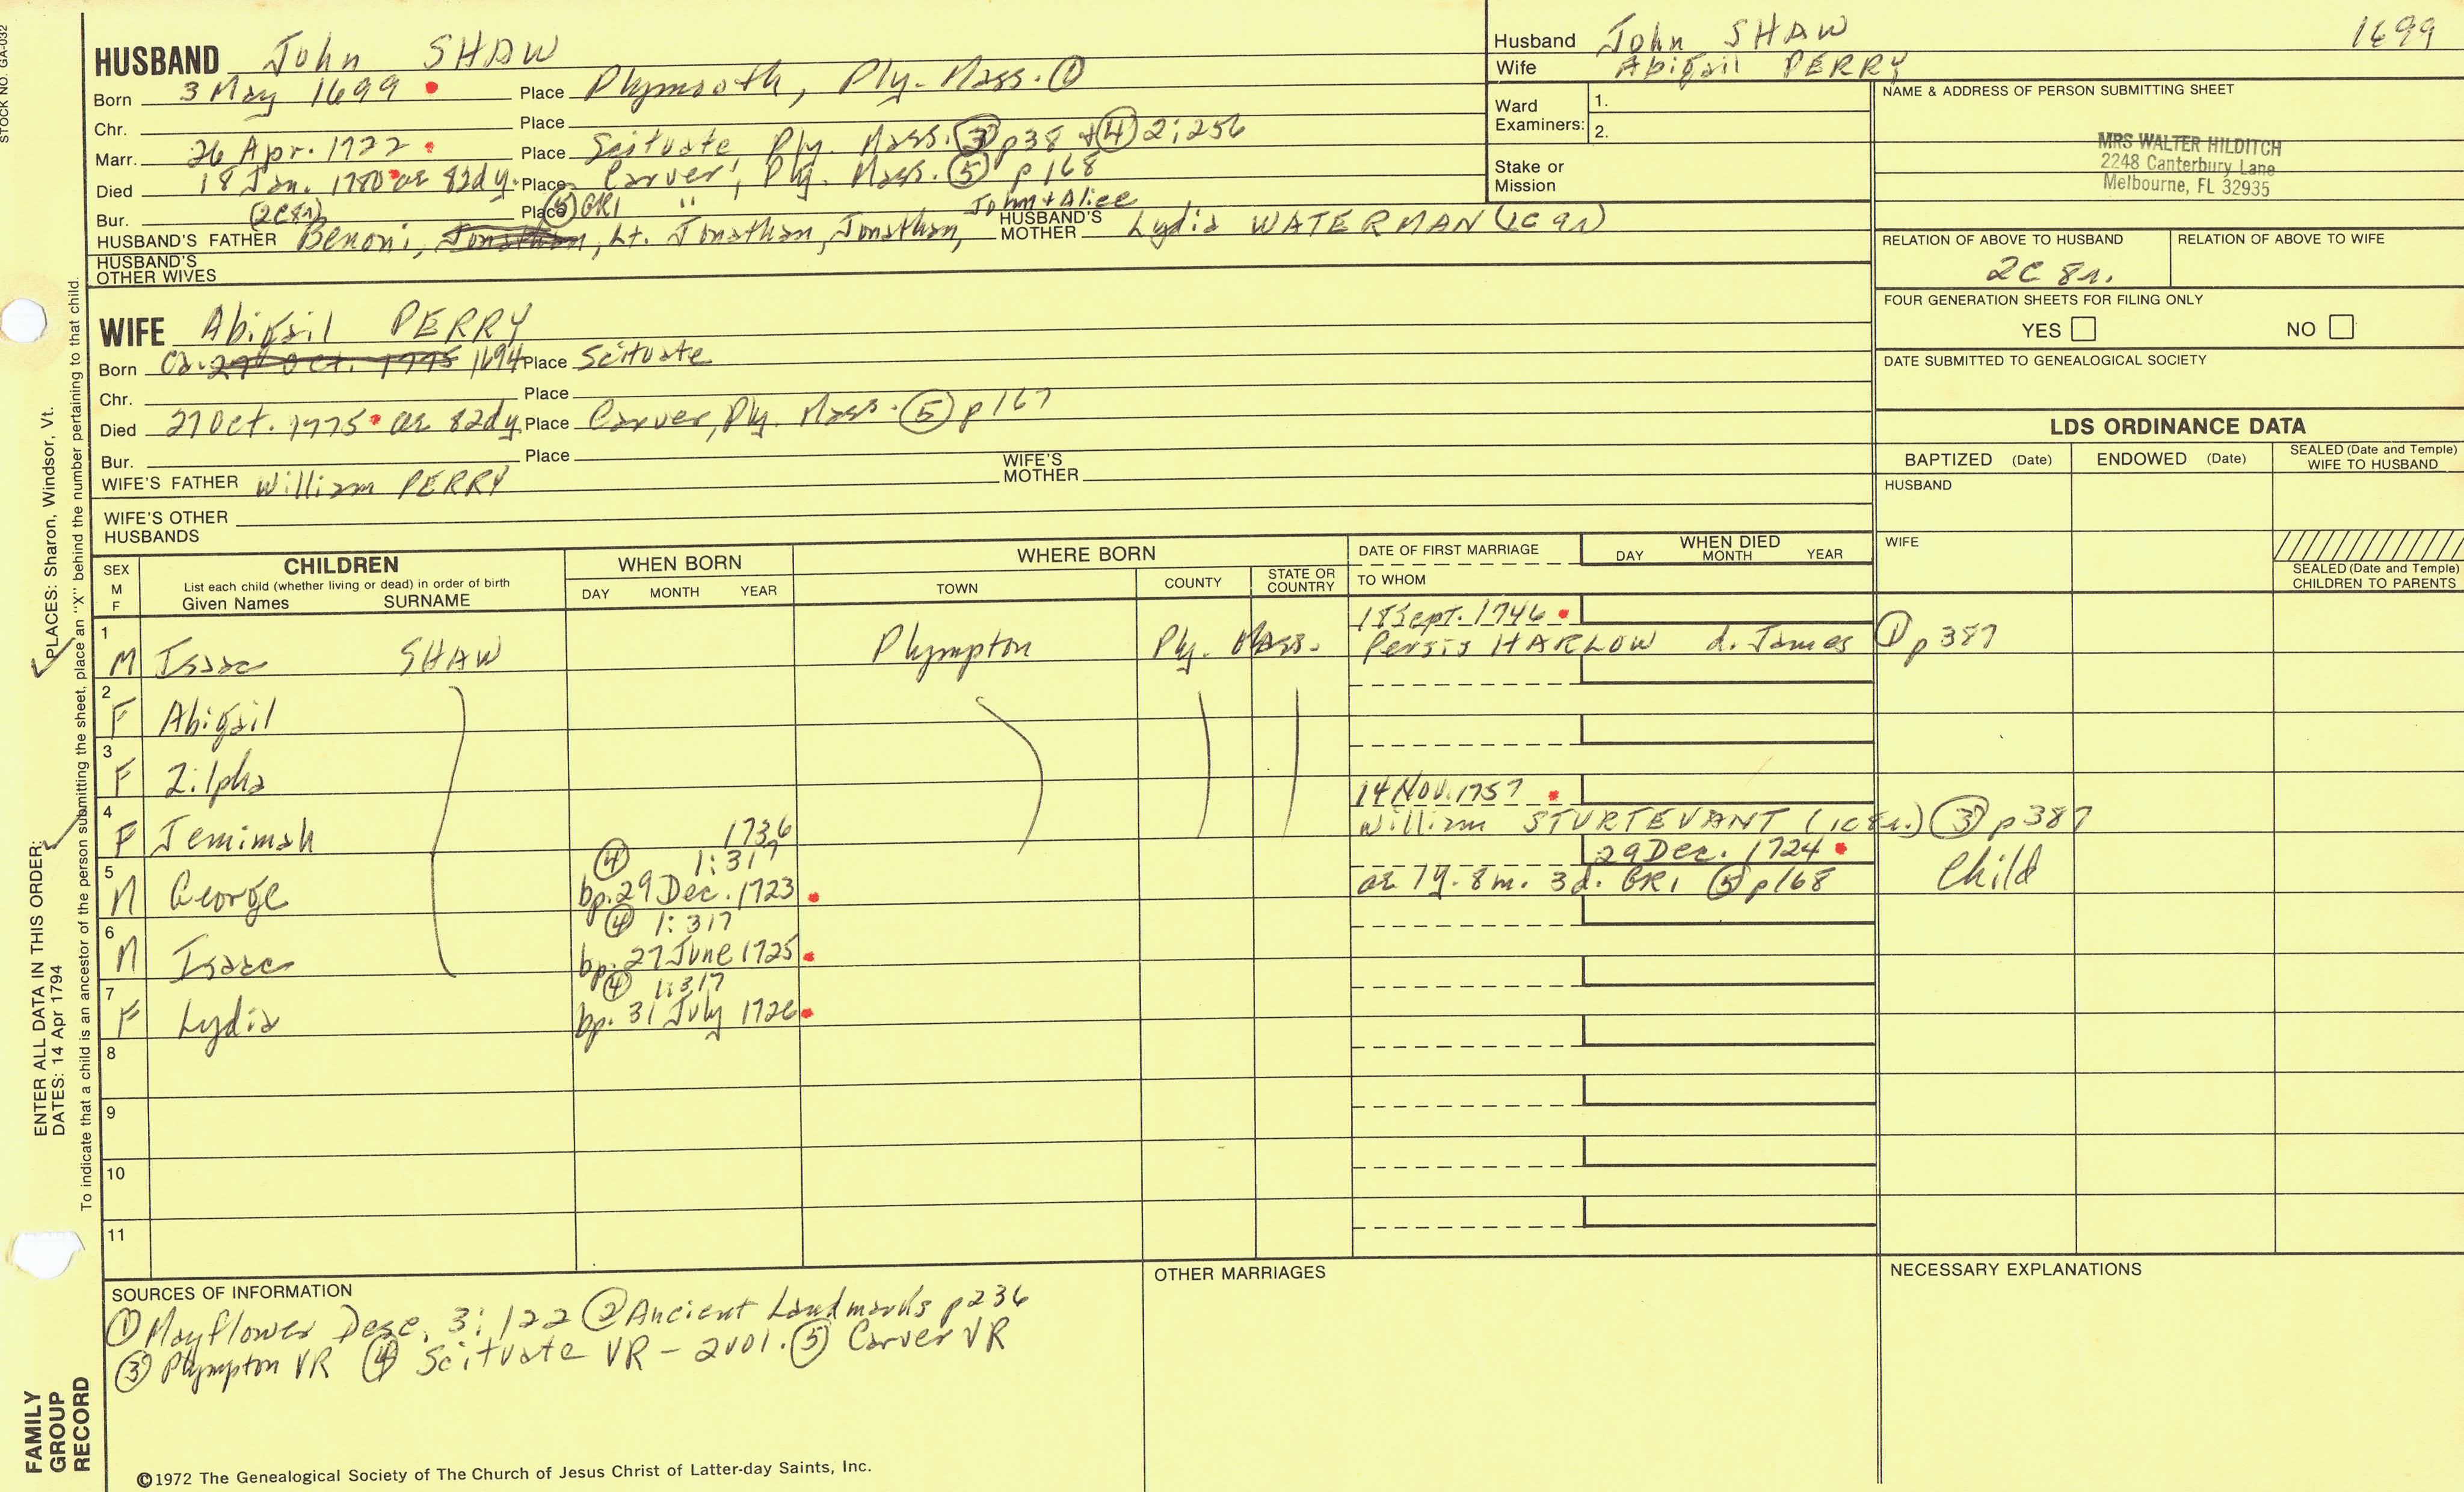 STOCK NO. GA-032
HUSBAND John SHAW
Born 3 May 1699 Place Plymouth, Ply. Mass. ①
Chr. Place
Marr. 26 Apr. 1722 Place Scituate, Ply. Mass. ③ p38 + ④ 2:256
Died 18 Jan. 1780 ae 82dy. Place Carver, Ply. Mass. ⑤ p168
Bur. (2C8r) Place ⑤ GR1 "
John + Alice
HUSBAND'S FATHER Benoni, Jonathan, Lt. Jonathan, Jonathan, HUSBAND'S MOTHER Lydia WATERMAN (1C9r)
HUSBAND'S OTHER WIVES
WIFE Abigail PERRY
Born Ca. 27 Oct. 1775 1694 Place Scituate
Chr. Place
Died 27 Oct. 1775 ae 82dy Place Carver, Ply. Mass. ⑤ p167
Bur. Place
WIFE'S FATHER William PERRY WIFE'S MOTHER
WIFE'S OTHER HUSBANDS
Husband John SHAW 1699
Wife Abigail PERRY
Ward Examiners: 1.
2.
Stake or Mission
NAME & ADDRESS OF PERSON SUBMITTING SHEET
MRS WALTER HILDITCH
2248 Canterbury Lane
Melbourne, FL 32935
RELATION OF ABOVE TO HUSBAND RELATION OF ABOVE TO WIFE
2C 8r.
FOUR GENERATION SHEETS FOR FILING ONLY
YES NO
DATE SUBMITTED TO GENEALOGICAL SOCIETY
LDS ORDINANCE DATA
BAPTIZED (Date) ENDOWED (Date) SEALED (Date and Temple) WIFE TO HUSBAND
HUSBAND
WIFE
SEALED (Date and Temple) CHILDREN TO PARENTS
SEX M F
CHILDREN
List each child (whether living or dead) in order of birth
Given Names SURNAME
WHEN BORN
DAY MONTH YEAR
WHERE BORN
TOWN COUNTY STATE OR COUNTRY
DATE OF FIRST MARRIAGE
TO WHOM
WHEN DIED
DAY MONTH YEAR
18 Sept. 1746
1 M Isaac SHAW Plympton Ply. Mass. Persis HARLOW d. James ① p 387
2 F Abigail
3 F Zilpha
14 Nov. 1757
4 F Jemimah 1736 William STURTEVANT (1C8r.) ③ p 387
④ 1:317 29 Dec. 1724
5 M George bp. 29 Dec. 1723 ae 1y. 8m. 3d. GR1 ⑤ p168 Child
④ 1:317
6 M Isaac bp. 27 June 1725
④ 1:317
7 F Lydia bp. 31 July 1726
8
9
10
11
SOURCES OF INFORMATION
① Mayflower Desc. 3:122 ② Ancient Landmarks p236
③ Plympton VR ④ Scituate VR - 2vol. ⑤ Carver VR
OTHER MARRIAGES
NECESSARY EXPLANATIONS
©1972 The Genealogical Society of The Church of Jesus Christ of Latter-day Saints, Inc.
ENTER ALL DATA IN THIS ORDER:
DATES: 14 Apr 1794
PLACES: Sharon, Windsor, Vt.
To indicate that a child is an ancestor of the person submitting the sheet, place an "X" behind the number pertaining to that child.
FAMILY
GROUP
RECORD